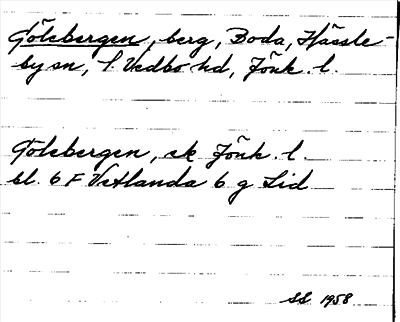 Gölsbergen, berg, Boda, Hässle-
by sn, S. Vedbo hd, Jönk. l.
Gölsbergen, ek Jönk. l.
bl. 6 F Vetlanda 6 g Lid
SS 1958